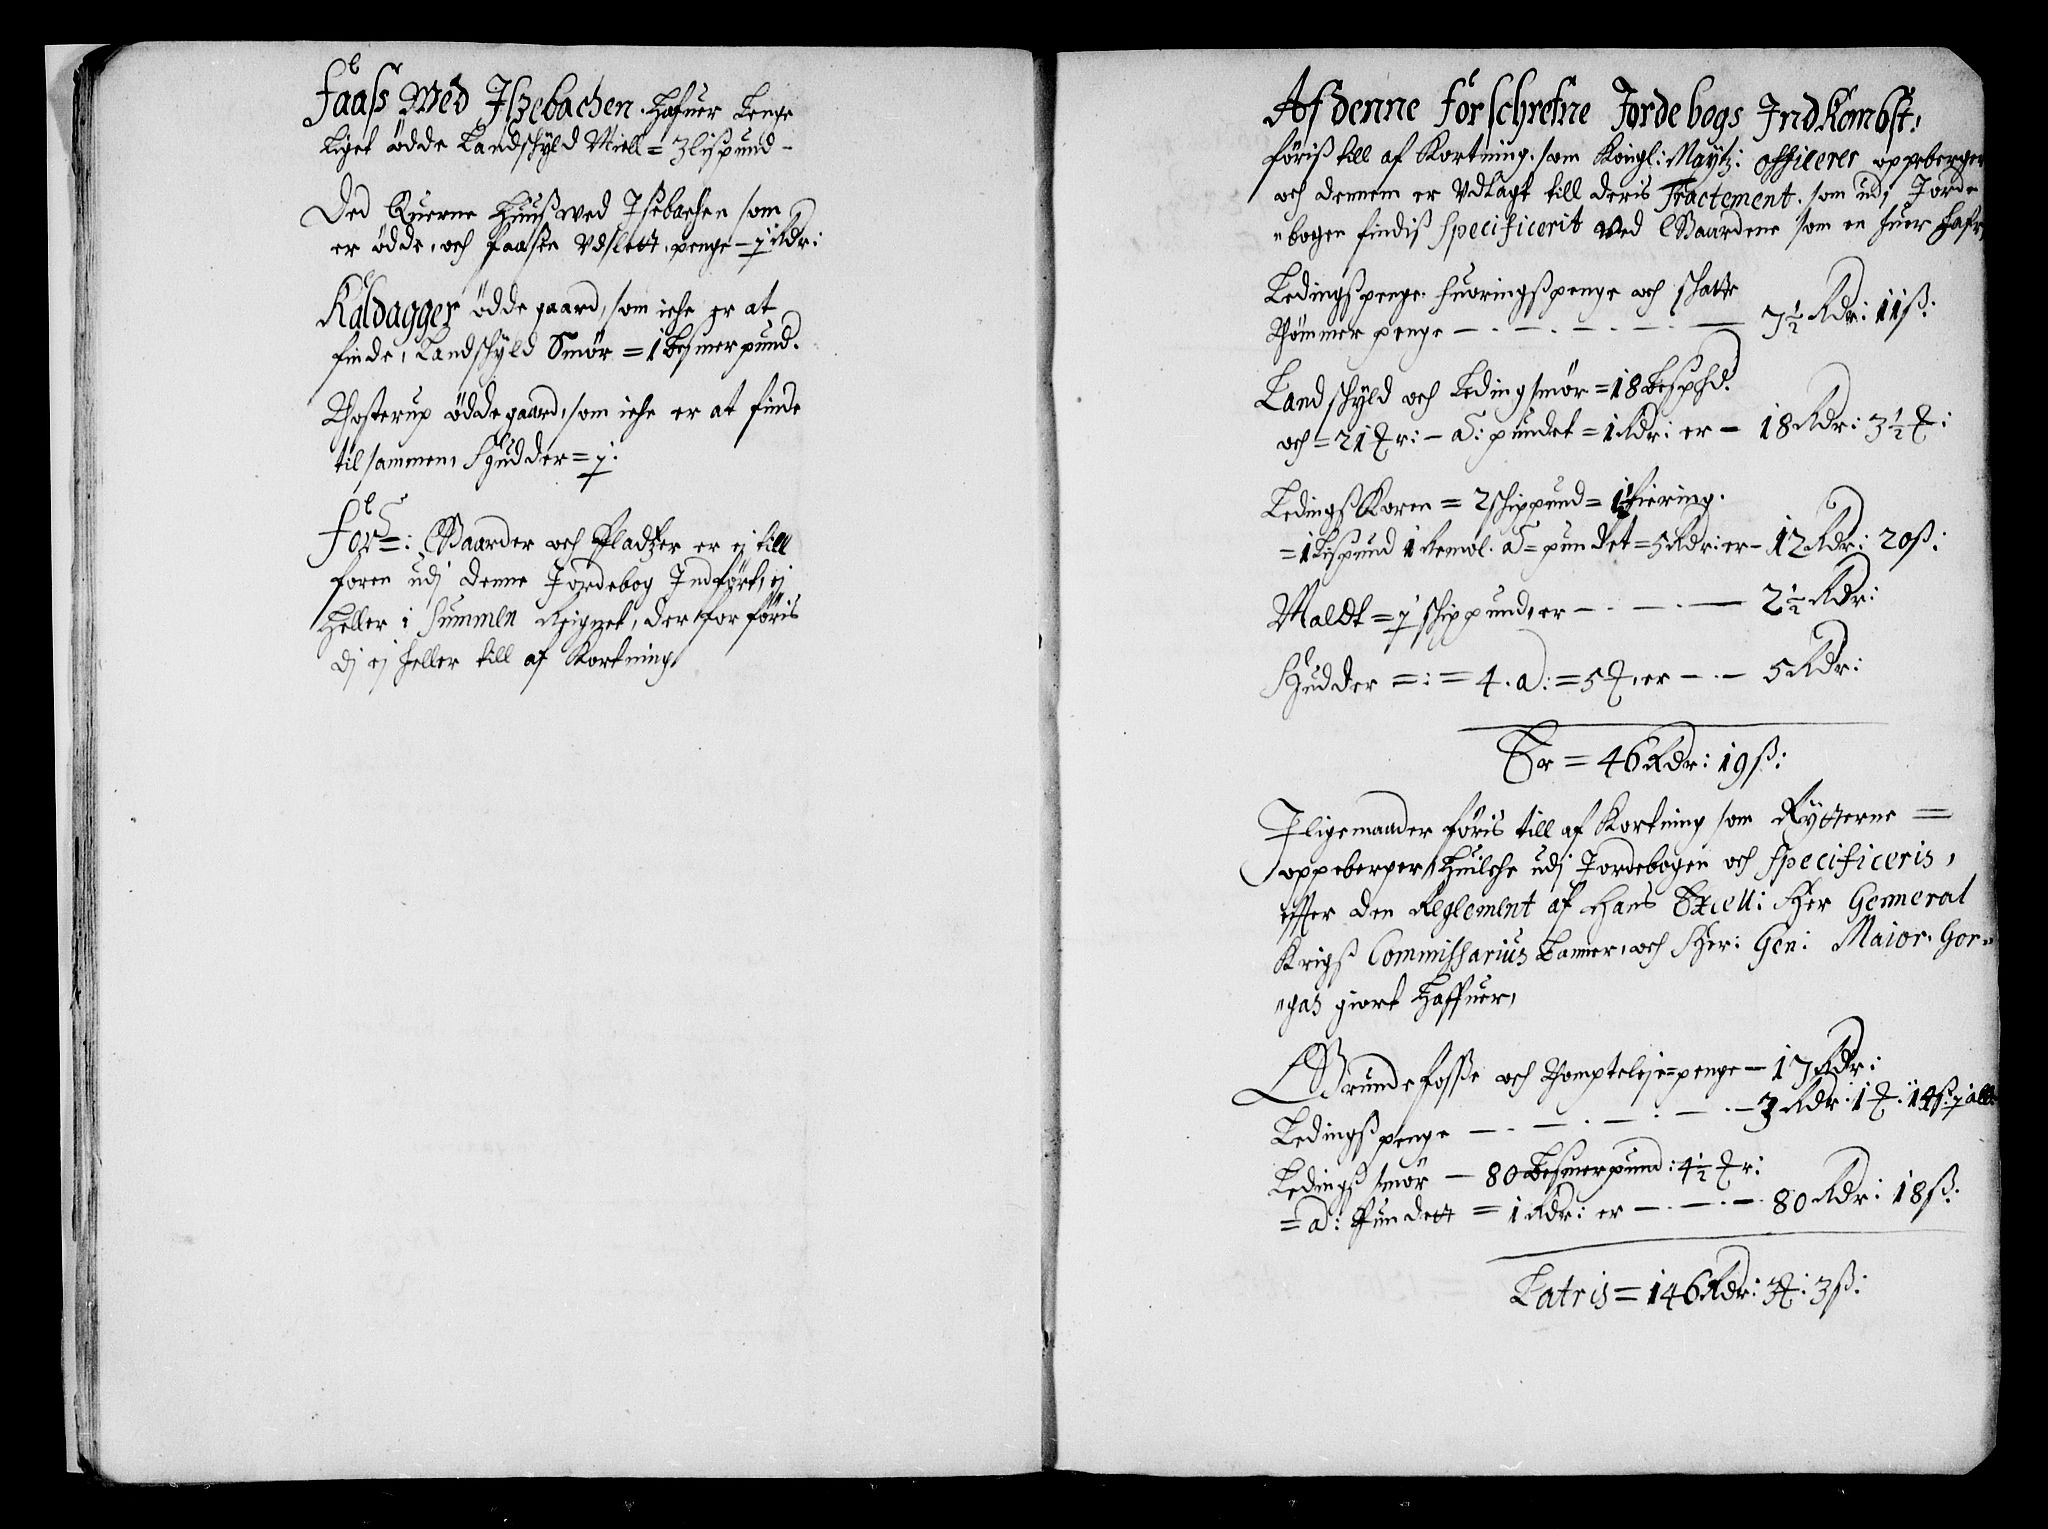 Faass Med Iszebachen. Hafuer Lenge
liget ödde Landschyld Miell = 3 lispund -
Ded Querne Huuss wed Isebachen som
er ödde, och Faasen Vdslett. penge - ½ Rdr:
Kaldagger ödde gaard, som iche er at
finde, Landschyld Smör = 1 Besmer pund.
Thosterup ödde gaard, som iche er at finde
til sammen, Huder = ½:
For=: Gaarder och Pladtzer er ej till
foren udj denne Jordebog Indfört, ej
Heller i Summen Reignet, der for föris
dj ej heller till af Kortning,
Af denne för schrefne Jorde bogs Indkombst:
föriss till af Kortning. som Kongl: Maytz: officerer oppeberger
och dennem er Vdlagt till deris Tractement. som udj Jorde
=bogen findiss Specificerit ved Gaardene som en huer hafr,
Ledingsspenge. Huoringsspenge och schatt
Thömmer penge - . - . - . - . - 7½ Rdr: 11ss:
Landschyld och Leding smör = 18 Bespd:
och = 21 r: - a: pundet = 1 Rdr: er - 18 Rdr: 3½ :
Ledings Koren = 2 schippund = 1½ fiering.
= 1 Lispund 1 Remol. a = pundet = 5 Rdr: er - 12 Rdr: 20ss:
Maldt = ½ schippund, er - . - . - 2½ Rdr:
Huder = : = 4. a: = 5 , er - . - 5 Rdr:
Er = 46 Rdr: 19ss:
Jligemaader föris till af Kortning som Rytterne =
oppeberger, Huilche udj Jordebogen och Specificeris,
effter den Reglement af Hans Excell: Her Genneral
Krigss Commissarius Banner, och Her: Gen: Maior. Gor=
=gas giort Haffuer,
Grundefosse och Thompteleje=penge - 17 Rdr:
Ledingsspenge - . - . - . - . - 3 Rdr: 1 : 14ss: ½ alb:
Ledingss smör - 80 Besmerpund: 4½ r:
= a: Pundett = 1 Rdr: er - . - . - 80 Rdr: 18ss:
Latris = 146 Rdr: 3 : 3ss: